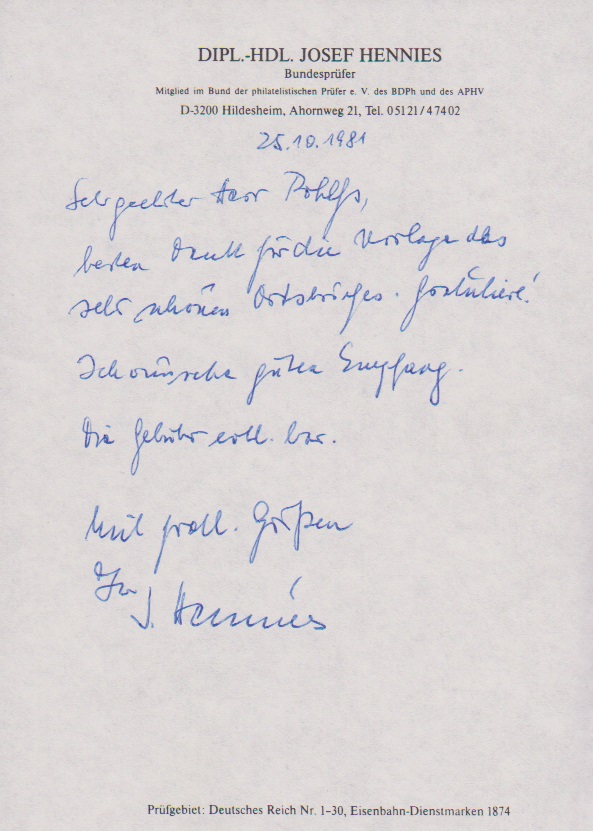 DIPL.-HDL. JOSEF HENNIES
Bundesprüfer
Mitglied im Bund der philatelistischen Prüfer e. V. des BDPh und des APHV
D-3200 Hildesheim, Ahornweg 21, Tel. 05121/47402
25.10.1981
Sehr geehrter Herr Rohlfs,
besten Dank für die Vorlage des
sehr schönen Ortsbriefes. Gratuliere!
Ich wünsche guten Empfang.
Die Gebühr evtl. bar.
Mit frdl. Grüßen
Ihr
J. Hennies
Prüfgebiet: Deutsches Reich Nr. 1-30, Eisenbahn-Dienstmarken 1874